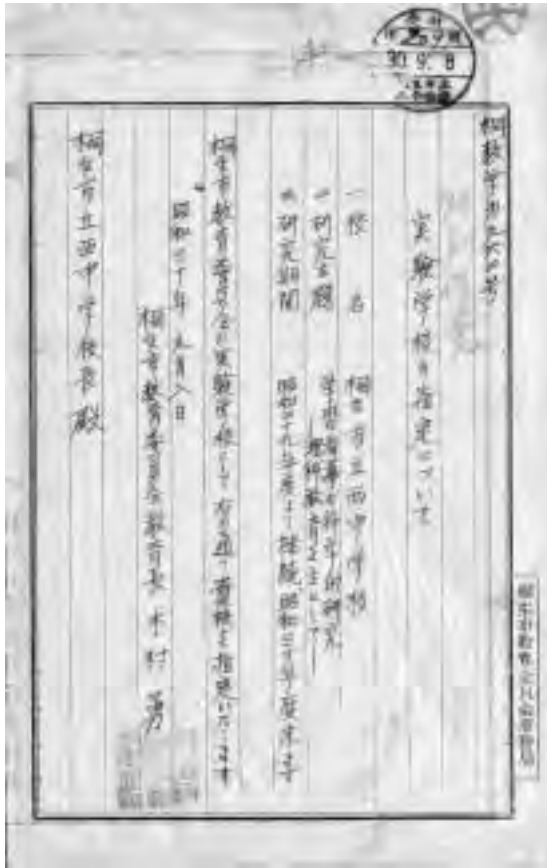 30.9.8
実験学校の指定について
一 校名 桐生市立西中学校
一 研究主題 学習指導の科学的研究
―理科教育を主として―
一 研究期間 昭和二十九年度より継続昭和三十年度末まで
桐生市教育委員会の実験学校として右の通り貴校を指定いたします
昭和三十年九月八日
桐生市教育委員会教育長 木村
桐生市立西中学校長殿